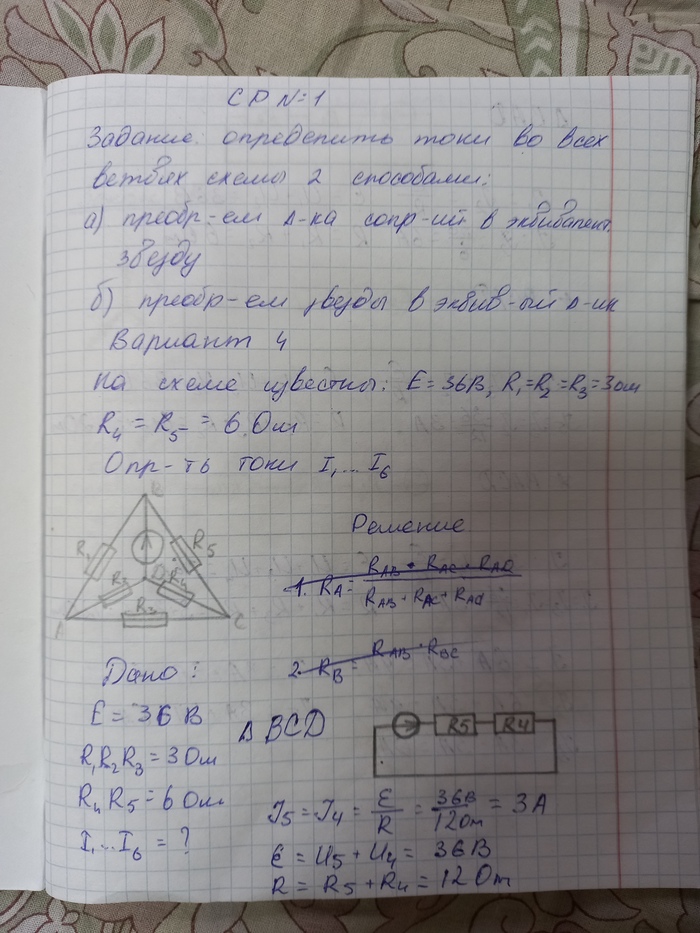 СР №1
Задание: определить токи во всех
ветвях схемы 2 способами:
а) преобр-ем Δ-ка сопр-ий в эквивалент.
звезду
б) преобр-ем звезды в эквив-ый Δ-ик
Вариант 4
На схеме известны: E = 36В, R₁=R₂=R₃=3ом
R₄ = R₅ = 6 Ом
Опр-ть токи I₁...I₆
B
R1
R5
R4
R3
A
Решение
1. R_A = R_AB • R_AC • R_AD / R_AB + R_AC + R_Ad
2. R_B = R_AB · R_BC
Дано:
E = 36 В
R₁R₂R₃ = 3 Ом
R₄ R₅ = 6 Ом
I₁...I₆ = ?
Δ BCD
R5 R4
J₅ = J₄ = Ɛ/R = 36В/12Ом = 3 А
Ɛ = U₅ + U₄ = 36В
R = R₅ + R₄ = 12 Ом